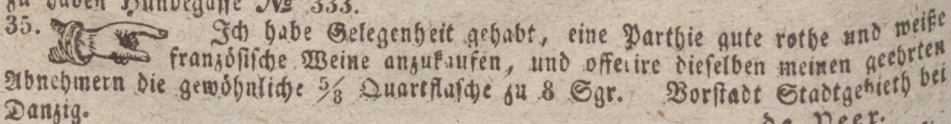 zu haben Hundegasse № 333.
35. Ich habe Gelegenheit gehabt, eine Parthie gute rothe und weiße
französische Weine anzukaufen, und offerire dieselben meinen geehrten
Abnehmern die gewöhnliche 5/8 Quartflasche zu 8 Sgr. Vorstadt Stadtgebieth bei
Danzig. de Veer.